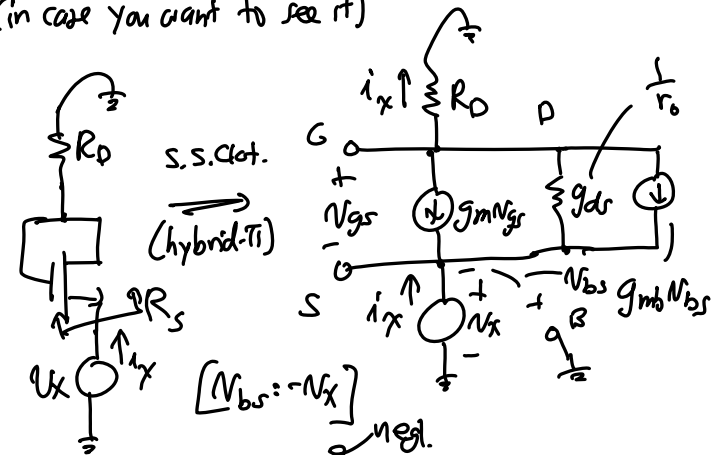 (in case you want to see it)
R_D
s.s. ckt.
(hybrid-π)
R_s
v_x
i_x
[v_bs = -v_x]
negl.
i_x
R_D
D
1/r_o
G
+
v_gs
-
g_m v_gs
g_ds
S
i_x
+
v_x
-
-
+
v_bs
g_mb v_bs
B